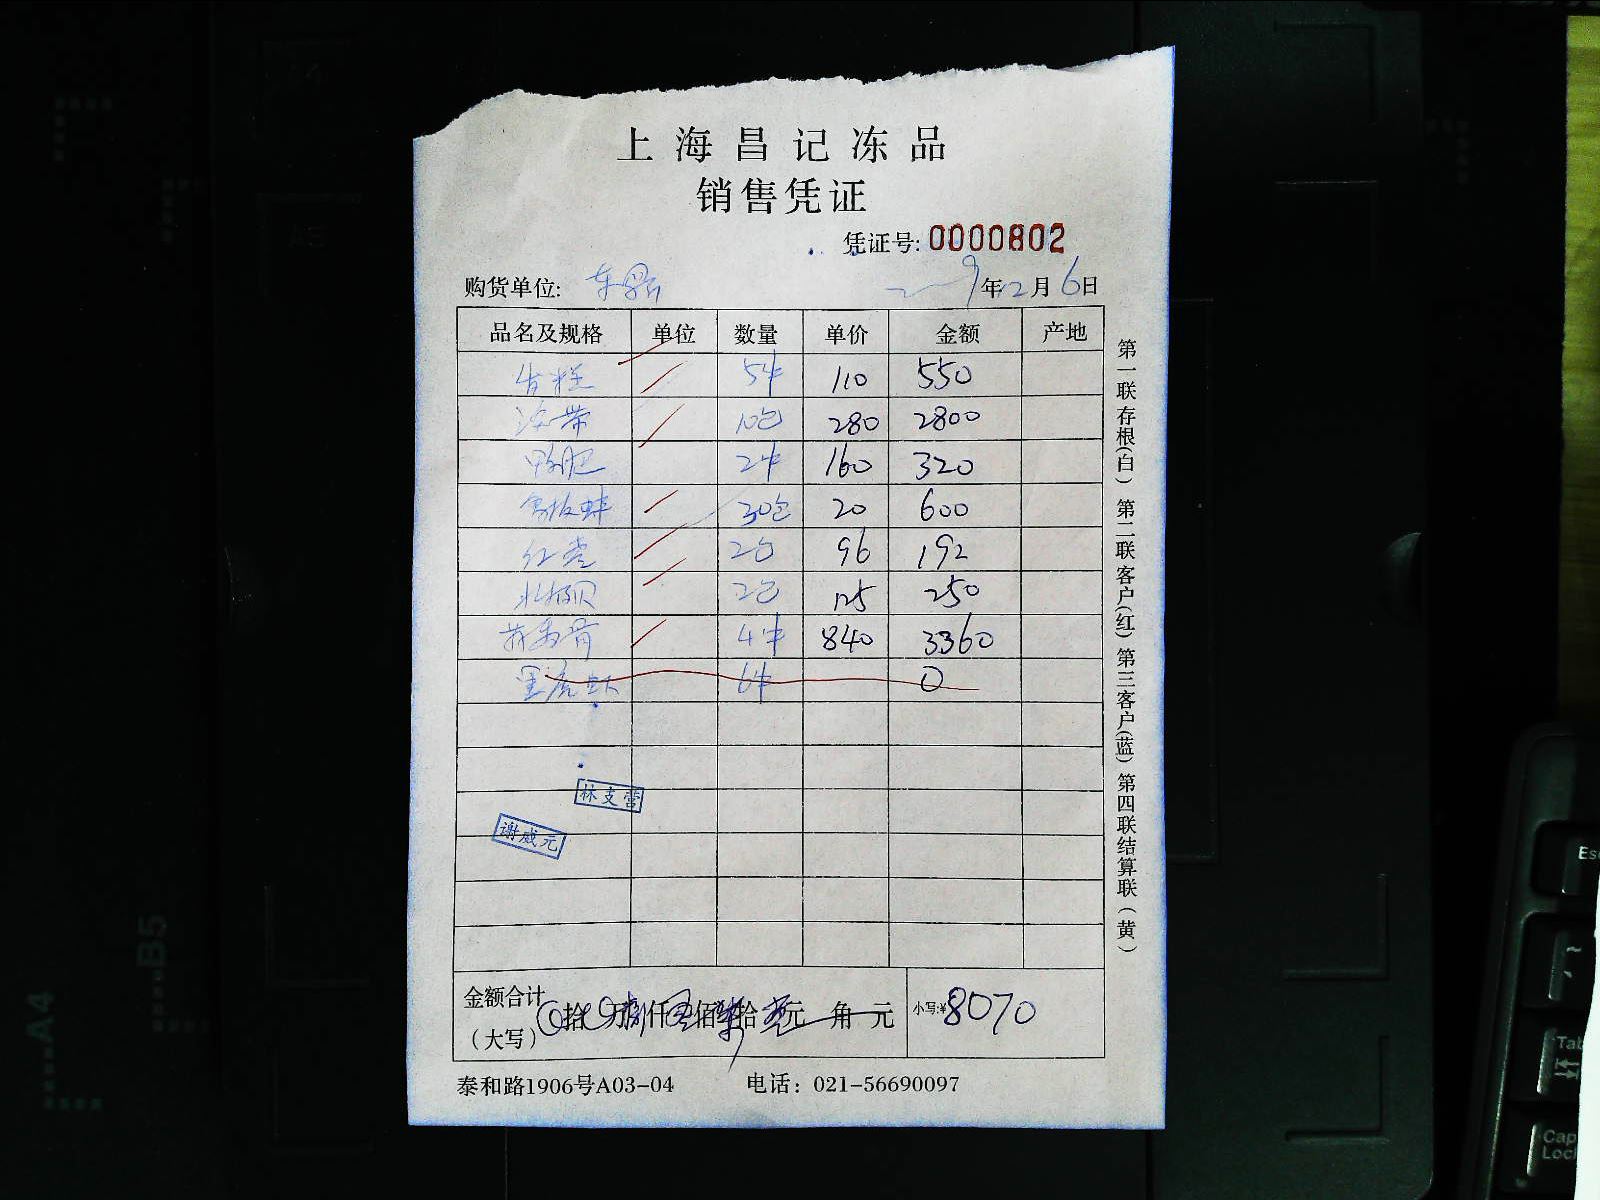 上海昌记冻品
销售凭证
凭证号: 0000802
购货单位: 年12月6日
品名及规格 单位 数量 单价 金额 产地
5件 110 550
10包 280 2800
鸭肥 2件 160 320
30包 20 600
2包 96 192
2包 125 250
4件 840 3360
黑虎虾 6件 0
林支营
谢威元
金额合计(大写) 拾 万 仟 佰 拾 元 角 元 小写:¥8070
泰和路1906号A03-04 电话: 021-56690097
第一联存根(白) 第二联客户(红) 第三客户(蓝) 第四联结算联(黄)
A4
B5
Esc
Tab
Caps Lock